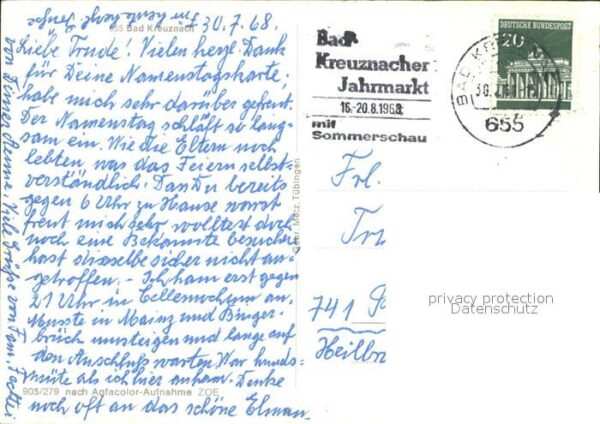 655 Bad Kreuznach
30.7.68.
Liebe Trude! Vielen herzl. Dank
für Deine Namenstagskarte,
habe mich sehr darüber gefreut.
Der Namenstag schläft so lang-
sam ein. Wie die Eltern noch
lebten, was das Feiern selbst-
verständlich. Das Du bereits
gegen 6 Uhr zu Hause warst
freut mich sehr, wolltest doch
noch eine Bekannte besuchen
hast dieselbe sicher nicht an-
getroffen. - Ich kam erst gegen
21 Uhr in an.
Musste in Mainz und Binger-
brück umsteigen und lange auf
den Anschluß warten. War hunds-
müde als ich hier ankam. Denke
noch oft an das schöne
von Deiner Viele Grüße von Fam.
905/279 nach Agfacolor-Aufnahme ZOE
Gebr. Metz, Tübingen
Bad
Kreuznacher
Jahrmarkt
16.-20.8.1968
mit
Sommerschau
DEUTSCHE BUNDESPOST
20
BAD
655
Frl.
741
Heilbr
privacy protection
Datenschutz